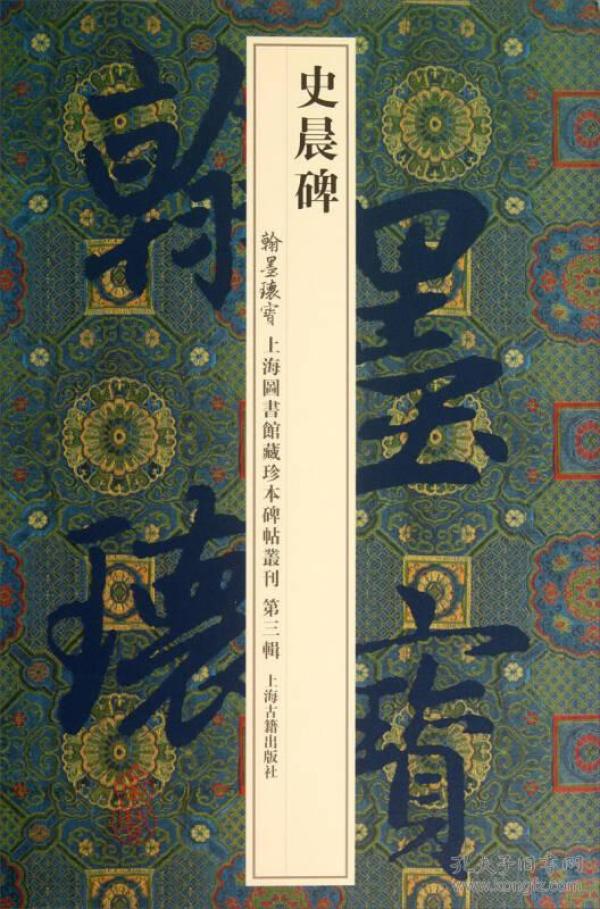 史晨碑
翰墨瓌寶 上海圖書館藏珍本碑帖叢刊 第三輯 上海古籍出版社
翰墨
瓌寶
孔夫子旧书网
www.kongfz.com